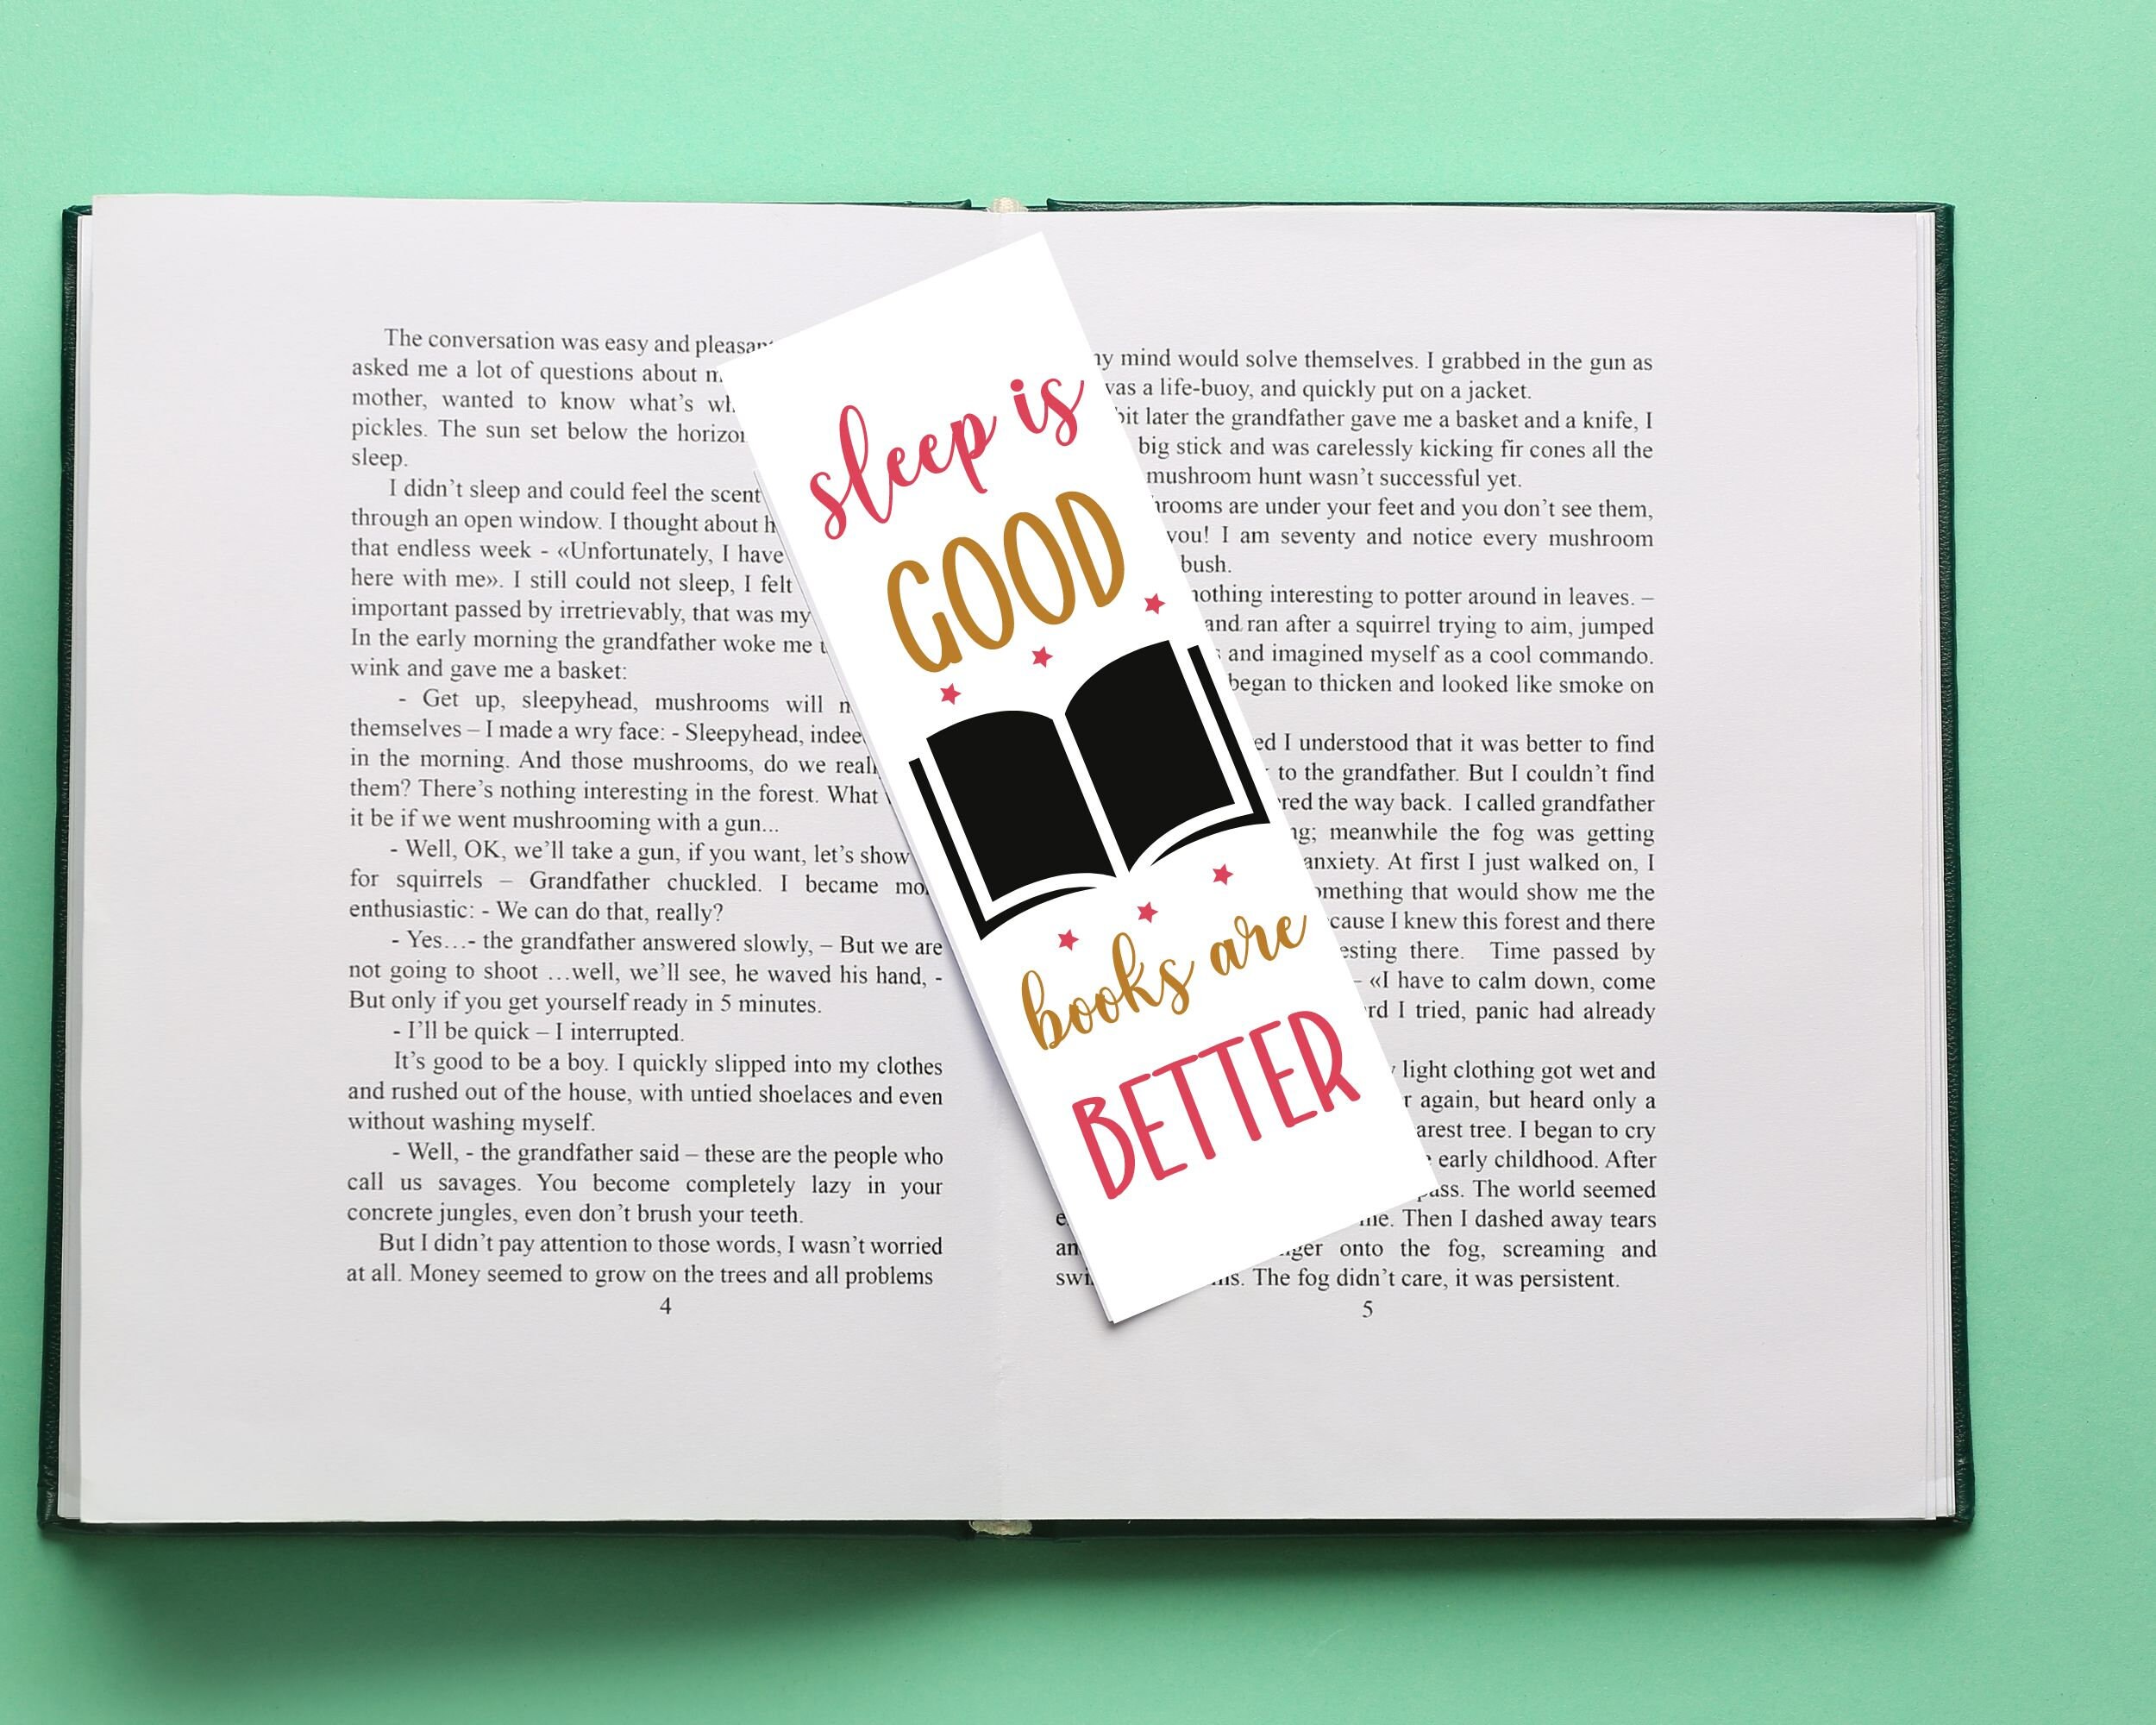 The conversation was easy and
asked me a lot of questions about
mother, wanted to know what's
pickles. The sun set below the
sleep.
I didn't sleep and could feel the scent
through an open window. I thought about
that endless week - «Unfortunately, I have
here with me». I still could not sleep, I felt
important passed by irretrievably, that was my
In the early morning the grandfather woke me
wink and gave me a basket:
- Get up, sleepyhead, mushrooms will
themselves – I made a wry face: - Sleepyhead,
in the morning. And those mushrooms, do we
them? There's nothing interesting in the forest. What
it be if we went mushrooming with a gun...
- Well, OK, we'll take a gun, if you want, let's show
for squirrels – Grandfather chuckled. I became
enthusiastic: - We can do that, really?
- Yes…- the grandfather answered slowly, – But we are
not going to shoot …well, we'll see, he waved his hand, -
But only if you get yourself ready in 5 minutes.
- I'll be quick – I interrupted.
It's good to be a boy. I quickly slipped into my clothes
and rushed out of the house, with untied shoelaces and even
without washing myself.
- Well, - the grandfather said – these are the people who
call us savages. You become completely lazy in your
concrete jungles, even don't brush your teeth.
But I didn't pay attention to those words, I wasn't worried
at all. Money seemed to grow on the trees and all problems
4
sleep is
GOOD
books are
BETTER
mind would solve themselves. I grabbed in the gun as
was a life-buoy, and quickly put on a jacket.
bit later the grandfather gave me a basket and a knife, I
big stick and was carelessly kicking fir cones all the
mushroom hunt wasn't successful yet.
are under your feet and you don't see them,
you! I am seventy and notice every mushroom
bush.
nothing interesting to potter around in leaves. –
and ran after a squirrel trying to aim, jumped
and imagined myself as a cool commando.
began to thicken and looked like smoke on
I understood that it was better to find
to the grandfather. But I couldn't find
the way back. I called grandfather
meanwhile the fog was getting
anxiety. At first I just walked on, I
something that would show me the
because I knew this forest and there
there. Time passed by
– «I have to calm down, come
I tried, panic had already
light clothing got wet and
again, but heard only a
tree. I began to cry
early childhood. After
The world seemed
Then I dashed away tears
onto the fog, screaming and
The fog didn't care, it was persistent.
5